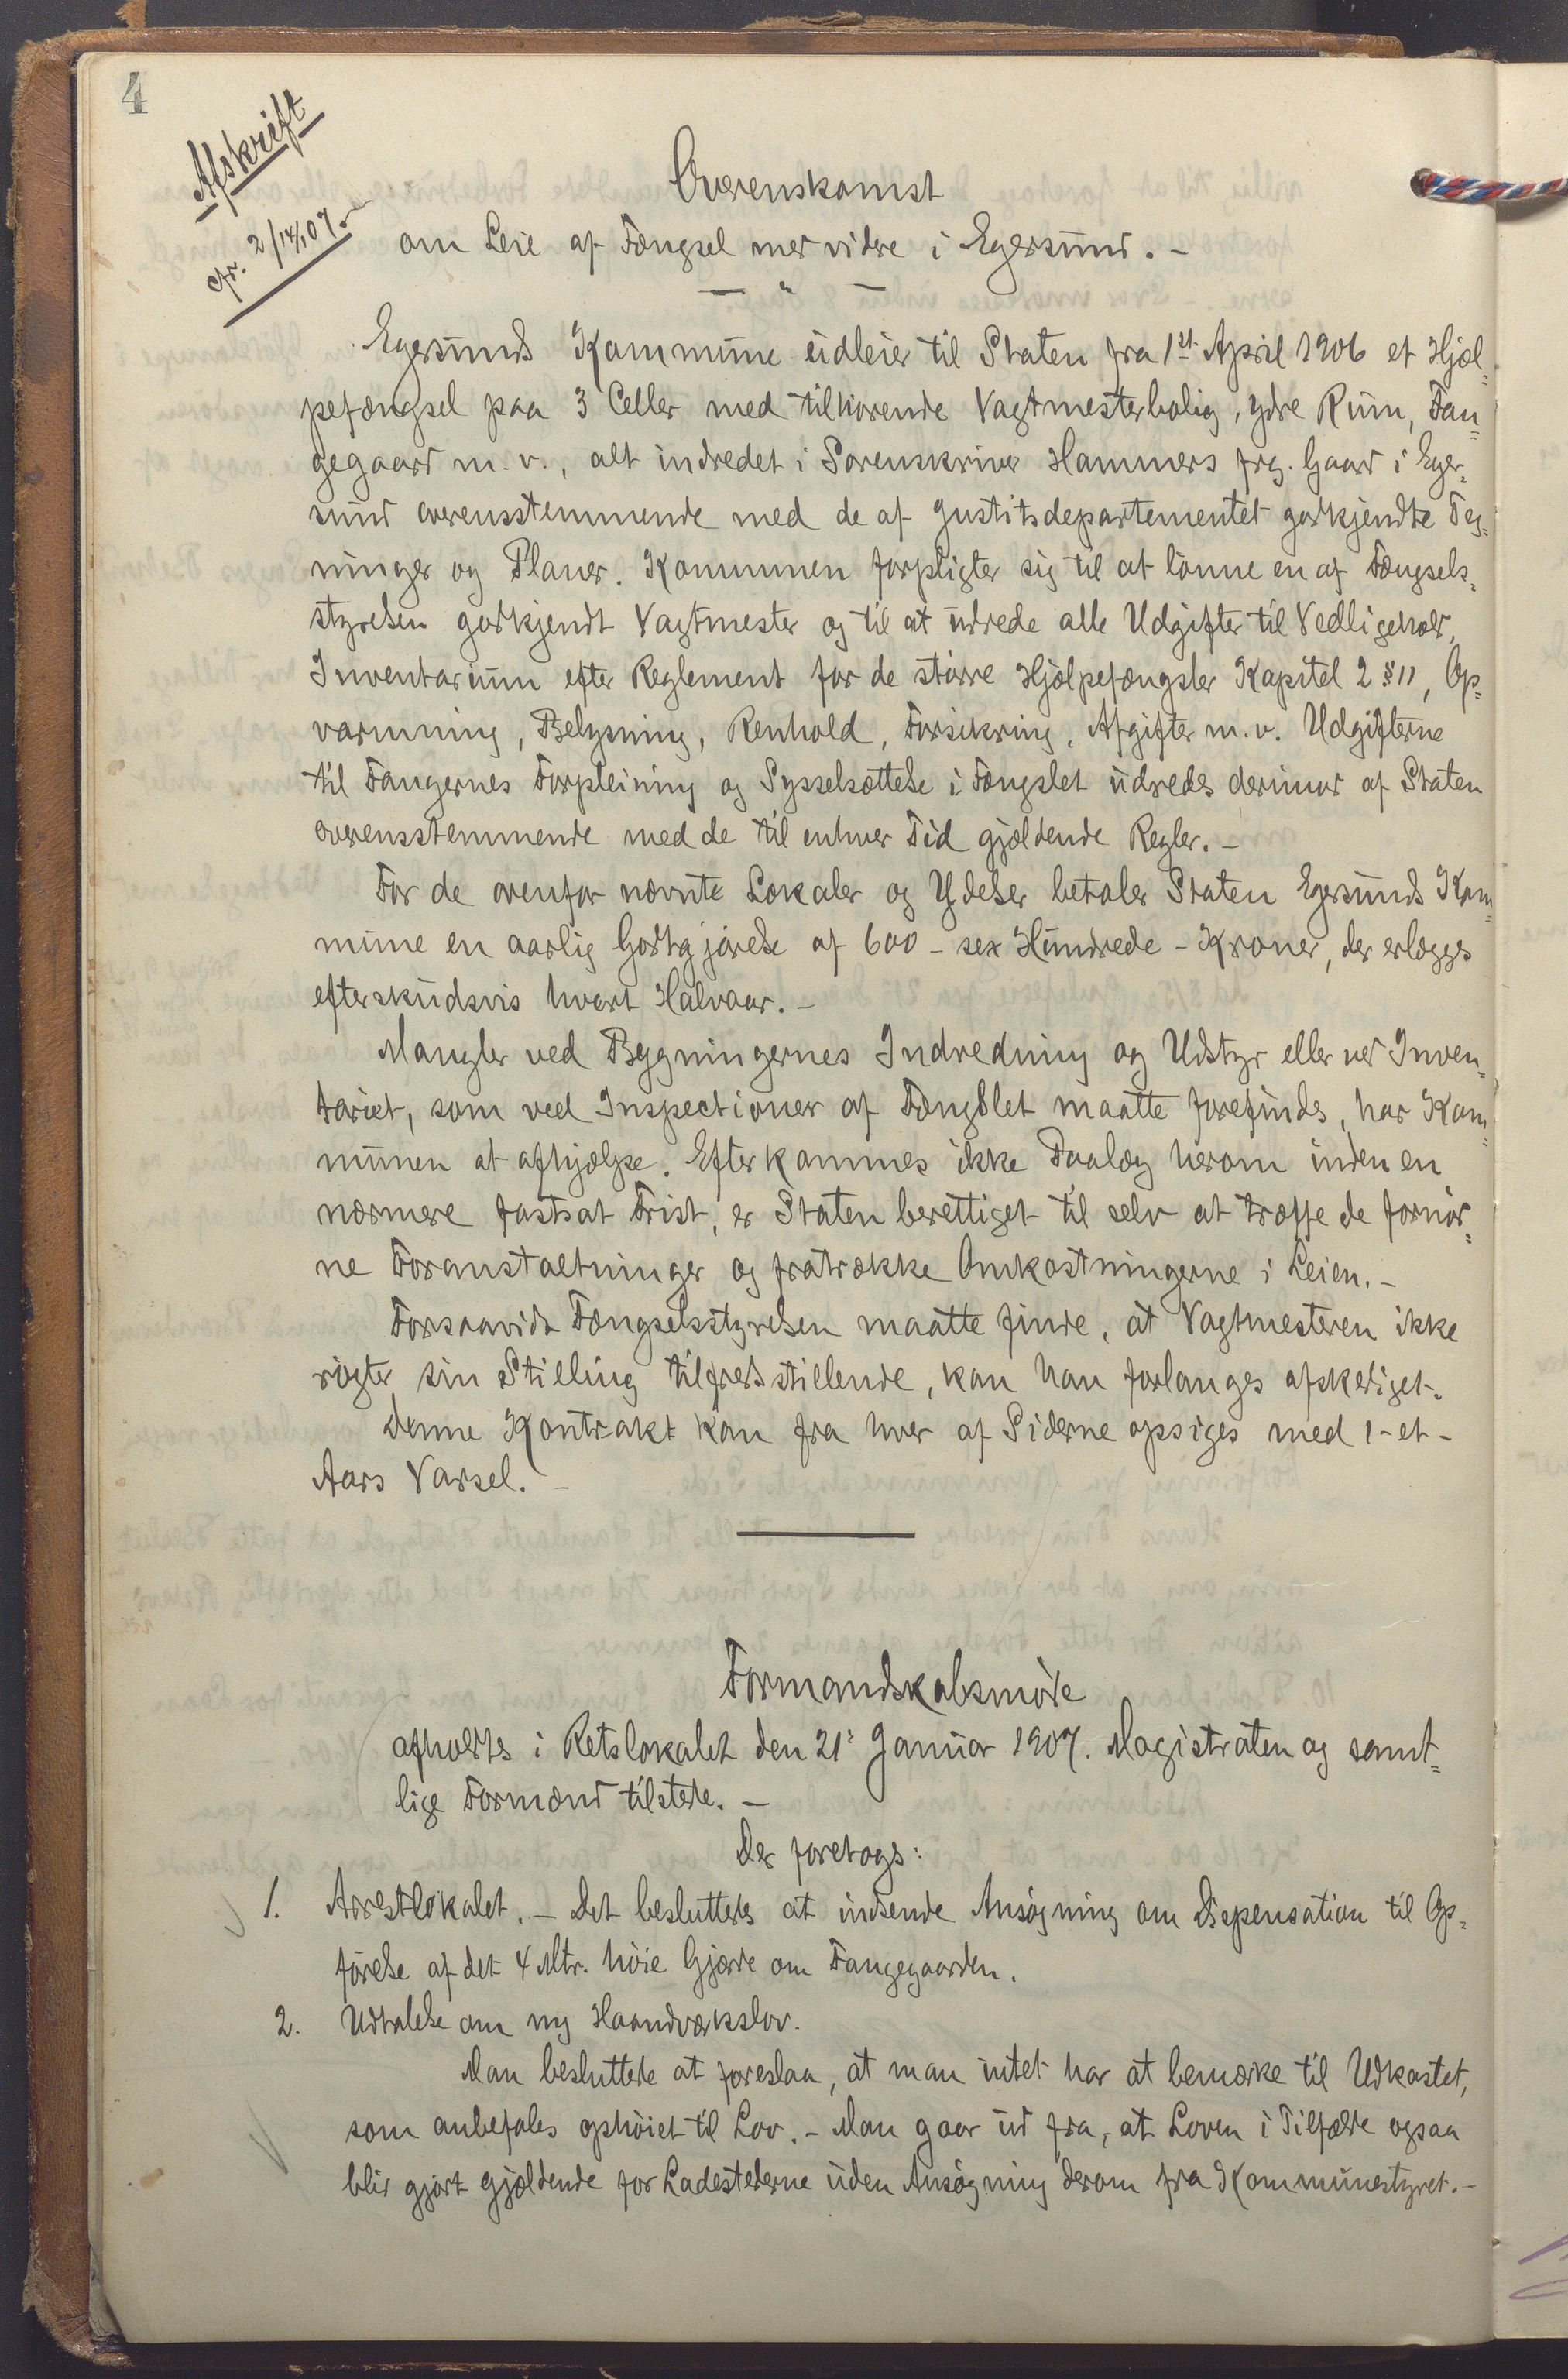 4
Afskrift
cfr. 2/14/07.-
Overenskomst
om Leie af Fængsel med videre i Egersund. -
— " —
Egersunds Kommune udleier til Staten fra 1st April 1906 et Hjæl=
pefængsel paa 3 Celler med tilhørende Vagtmesterbolig, ydre Rum, Fan=
gegaard m. v., alt indredet i Sorenskriver Hammers frg. Gaard i Eger=
sund overensstemmende med de af Justitsdepartementet godkjendte Teg=
ninger og Planer. Kommunen forpligter sig til at lønne en af Fængsels=
styrelsen godkjendt Vagtmester og til at udrede alle Udgifter til Vedligehold,
Inventarium efter Reglement for de større Hjælpefængsler Kapitel 2 § 11, Op=
varmning, Belysning, Renhold, Forsikring, Afgifter m. v. Udgifterne
til Fangernes Forpleining og Sysselsættelse i Fængslet udredes derimod af Staten
overensstemmende med de til enhver Tid gjældende Regler. -
For de ovenfor nævnte Lokaler og Ydelser betaler Staten Egersunds Kom=
mune en aarlig Godtgjørelse af 600 - sex Hundrede - Kroner, der erlægges
efterskudsvis hvert Halvaar. -
Mangler ved Bygningernes Indredning og Udstyr eller ved Inven=
tariet, som ved Inspectioner af Fængslet maatte forefindes, har Kom=
munen at afhjælpe. Efterkommes ikke Paalæg herom inden en
nærmere fastsat Frist, er Staten berettiget til selv at træffe de fornød=
ne Foranstaltninger og fratrække Omkostningerne i Leien. -
Forsaavidt Fængselsstyrelsen maatte finde, at Vagtmesteren ikke
røgter sin Stilling tilfredsstillende, kan han forlanges afskediget.
Denne Kontrakt kan fra hver af Siderne opsiges med 1 - et -
Aars Varsel. -
Formandskabsmøde
afholdtes i Retslokalet den 21' Januar 1907. Magistraten og samt=
lige Formænd tilstede. -
Der foretoges:
1. Arrestlokalet. - Det besluttedes at indsende Ansøgning om Dispensation til Op=
førelse af det 4 Mtr. høie Gjærde om Fangegaarden.
2. Udtalelse om ny Haandværkslov.
Man besluttede at foreslaa, at man intet har at bemærke til Udkastet,
som anbefales ophøiet til Lov. - Man gaar ud fra, at Loven i Tilfælde ogsaa
blir gjort gjældende for Ladestederne uden Ansøgning derom fra Kommunestyret. -